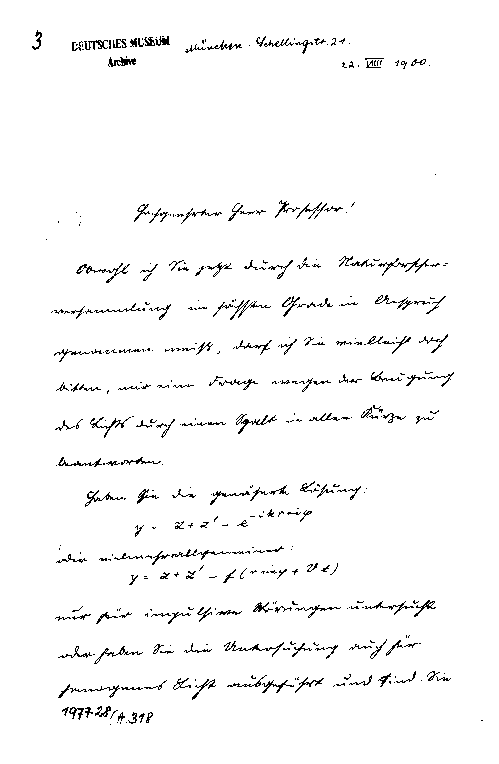 3
DEUTSCHES MUSEUM
Archive
München. Schellingstr. 21.
22. VIII 1900.
Hochgeehrter Herr Professor!
Obwohl ich Sie jetzt durch die Naturforscher-
versammlung im höchsten Grade in Anspruch
genommen weiß, darf ich Sie vielleicht doch
bitten, mir eine Frage wegen der Beugung
des Lichts durch einen Spalt in aller Kürze zu
beantworten.
Haben Sie die genäherte Lösung:
y = z + z' - e^{-ikr sin φ}
oder vielmehr allgemeiner:
y = z + z' - f(r sin φ + Vt)
nur für impulsive Störungen untersucht
oder haben Sie die Untersuchung auch für
homogenes Licht ausgeführt und sind Sie
1977-28/A.318